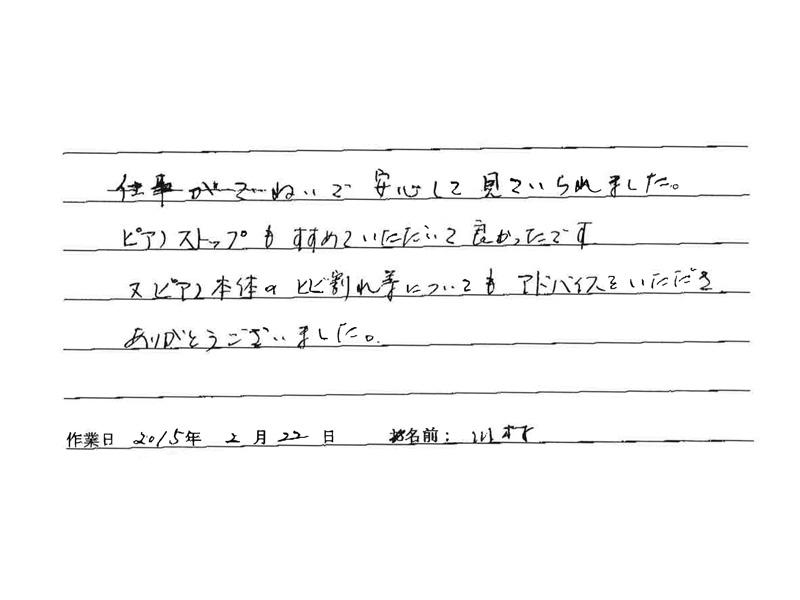 仕事がていねいで 安心して見ていられました。
ピアノストップもすすめていただいて良かったです
又ピアノ本体のヒビ割れ等についてもアドバイスをいただき
ありがとうございました。
作業日 2015年 2月22日 お名前: 川村